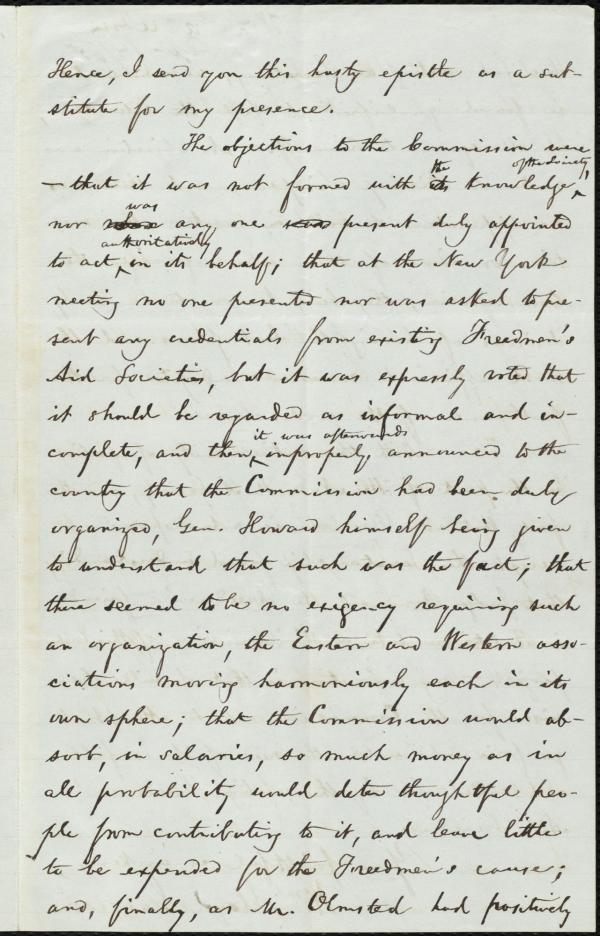 Hence, I send you this hasty epistle as a sub-
stitute for my presence.
The objections to the Commission were
of the Society,
the
— that it was not formed with its knowledge,
was
nor any one present duly appointed
authoritatively
to act, in its behalf; that at the New York
meeting no one presented nor was asked to pre-
sent any credentials from existing Freedmen's
Aid Societies, but it was expressly voted that
it should be regarded as informal and in-
it was afterwards
complete, and then improperly announced to the
country that the Commission had been duly
organized, Gen. Howard himself being given
to understand that such was the fact; that
there seemed to be no exigency requiring such
an organization, the Eastern and Western asso-
ciations moving harmoniously each in its
own sphere; that the Commission would ab-
sorb, in salaries, so much money as in
all probability would deter thoughtful peo-
ple from contributing to it, and leave little
to be expended for the Freedmen's cause;
and, finally, as Mr. Olmsted had positively